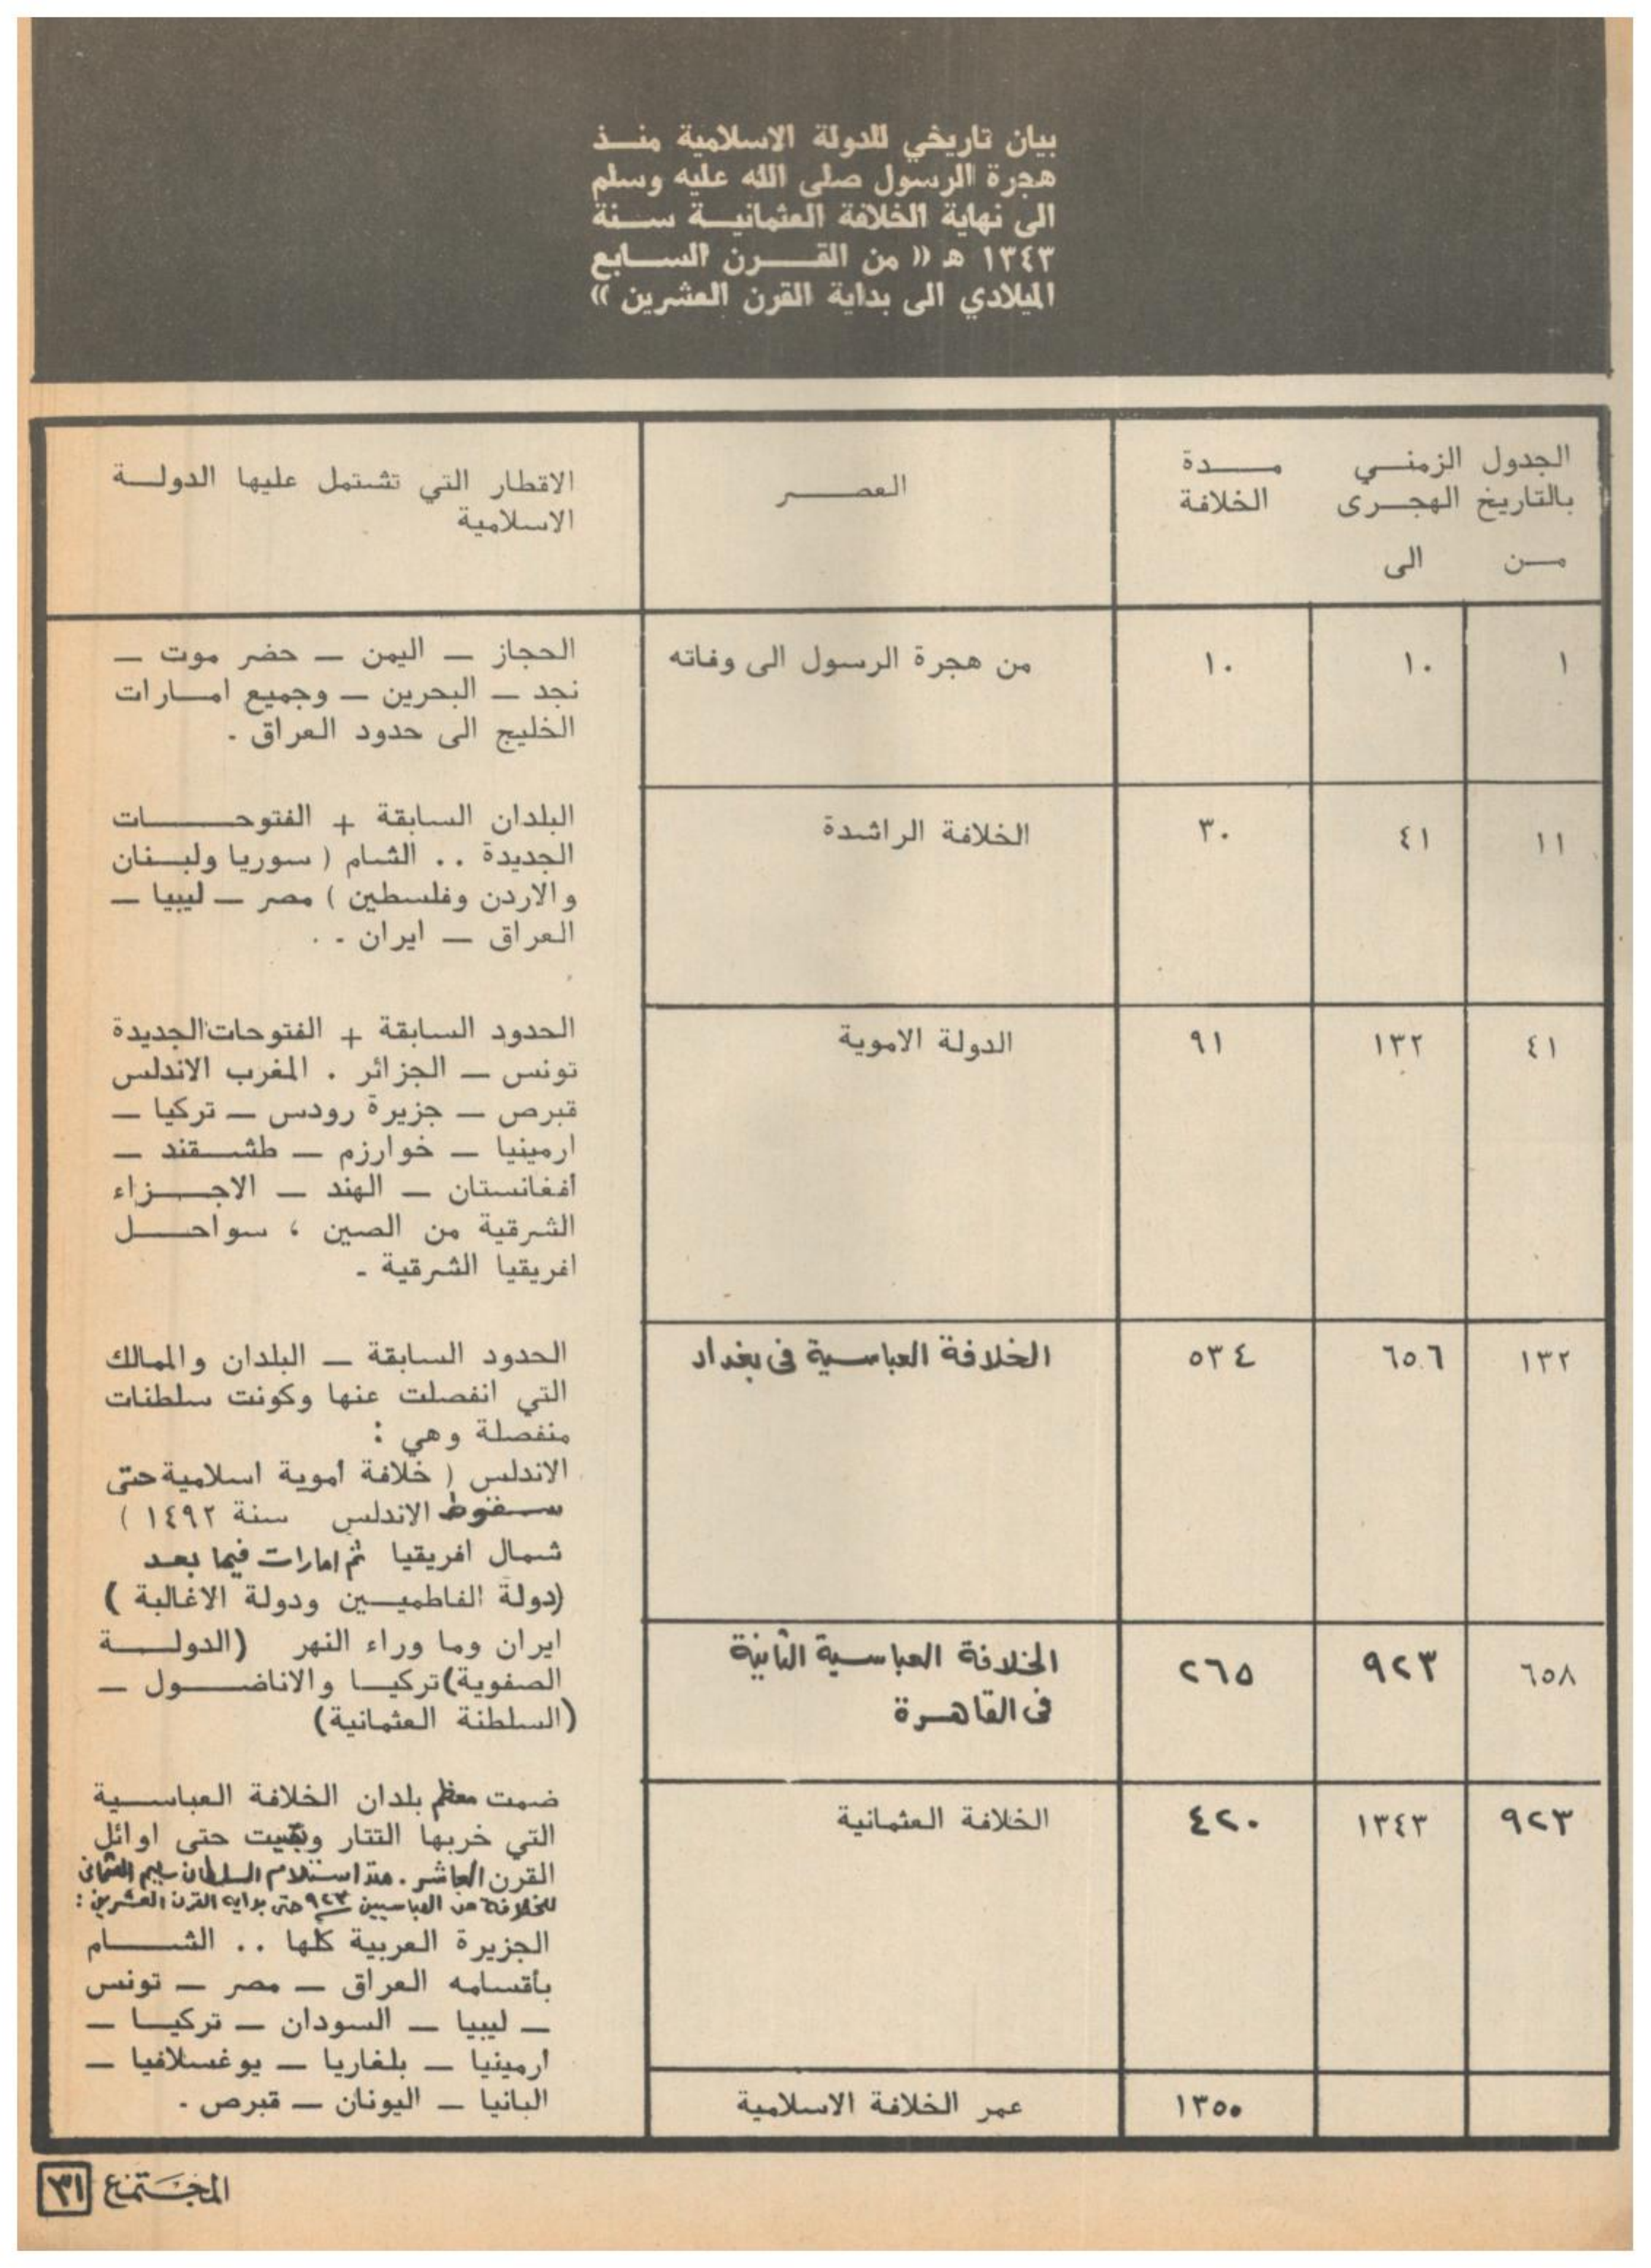 بيان تاريخي للدولة الاسلامية منــذ
هجرة الرسول صلى الله عليه وسلم
الى نهاية الخلافة العثمانيــة ســنة
١٣٤٣ هـ (( من القــرن الســابع
الميلادي الى بداية القرن العشرين ))
الجدول الزمنــي
بالتاريخ الهجــرى
مــن الى
مــــدة
الخلافة
العصــــر
الاقطار التي تشتمل عليها الدولــة
الاسلامية
١ ١٠ ١٠ من هجرة الرسول الى وفاته
الحجاز ــ اليمن ــ حضر موت ــ
نجد ــ البحرين ــ وجميع امــارات
الخليج الى حدود العراق .
١١ ٤١ ٣٠ الخلافة الراشدة
البلدان السابقة + الفتوحــــات
الجديدة .. الشام ( سوريا ولبــنان
والاردن وفلسطين ) مصر ــ ليبيا ــ
العراق ــ ايران . .
٤١ ١٣٢ ٩١ الدولة الاموية
الحدود السابقة + الفتوحات الجديدة
تونس ــ الجزائر . المغرب الاندلس
قبرص ــ جزيرة رودس ــ تركيا ــ
ارمينيا ــ خوارزم ــ طشــقند ــ
أفغانستان ــ الهند ــ الاجــزاء
الشرقية من الصين ، سواحــل
افريقيا الشرقية .
١٣٢ ٦٥٦ ٥٣٤ الخلافة العباسية فى بغداد
الحدود السابقة ــ البلدان والممالك
التي انفصلت عنها وكونت سلطنات
منفصلة وهي :
الاندلس ( خلافة أموية اسلامية حتى
سقوط الاندلس سنة ١٤٩٢ )
شمال افريقيا ثم امارات فيما بعد
(دولة الفاطميــين ودولة الاغالبة )
ايران وما وراء النهر (الدولــة
الصفوية) تركيــا والاناضــول ــ
(السلطنة العثمانية)
٦٥٨ ٩٢٣ ٢٦٥ الخلافة العباسية الثانية
فى القاهرة
٩٢٣ ١٣٤٣ ٤٢٠ الخلافة العثمانية
ضمت معظم بلدان الخلافة العباســية
التي خربها التتار وبقيت حتى اوائل
القرن العاشر . منذ استلام السلطان سليم العثمانى
للخلافة من العباسيين ٩٢٣ حتى بداية القرن العشرين :
الجزيرة العربية كلها .. الشــام
بأقسامه العراق ــ مصر ــ تونس
ــ ليبيا ــ السودان ــ تركيــا ــ
أرمينيا ــ بلغاريا ــ يوغسلافيا ــ
البانيا ــ اليونان ــ قبرص .
١٣٥٠ عمر الخلافة الاسلامية
المجتمع ٣١